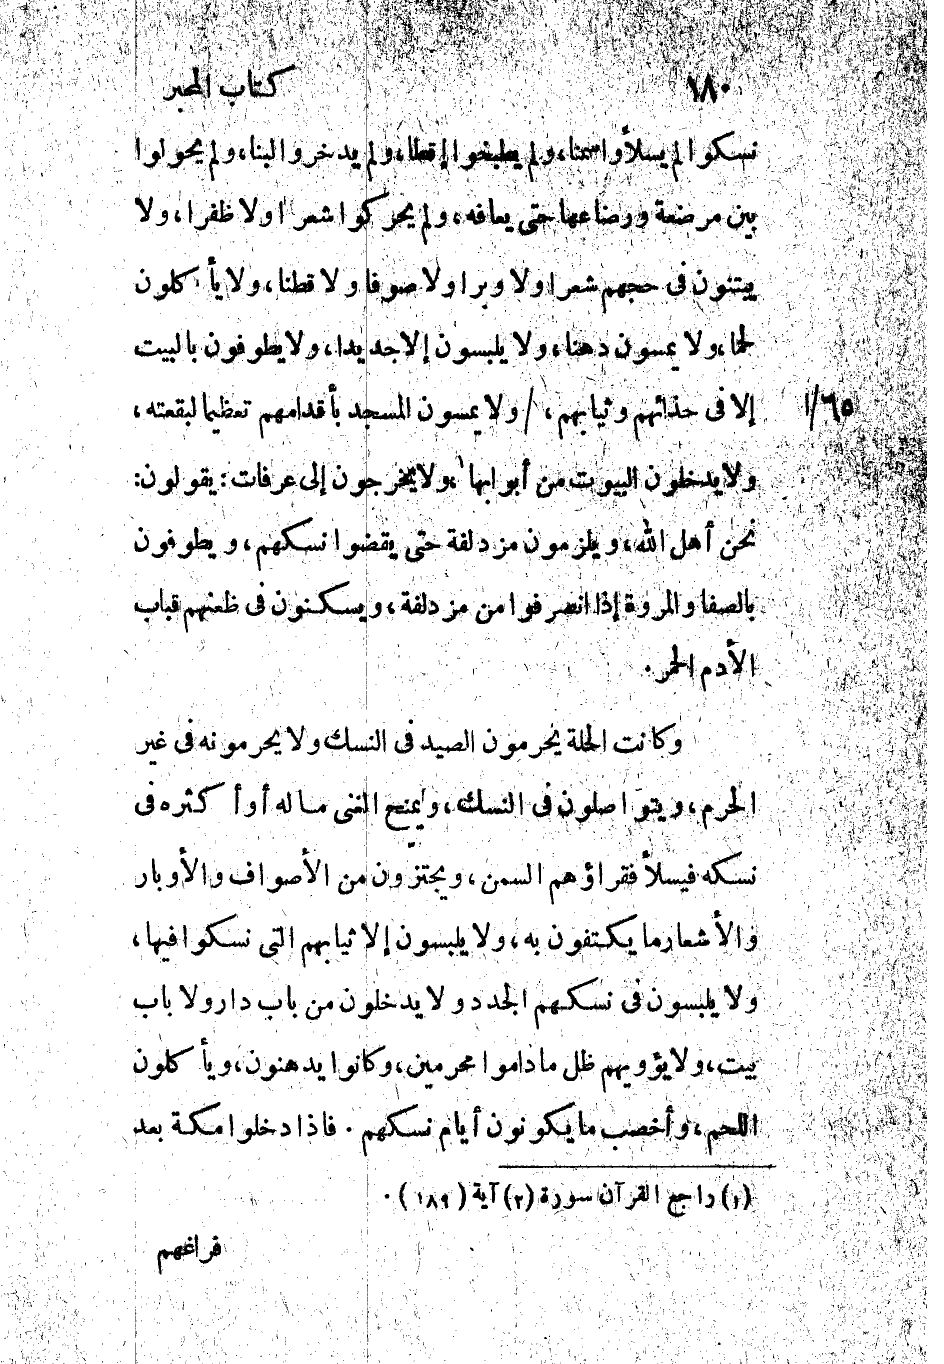 ١٨٠ كتاب المحبر
نسكوا لم يسلأوا سمنا، ولم يطبخوا إقطا، ولم يدخروا لبنا، ولم يحولوا
بين مرضعة ورضاعها حتى يعافه، ولم يحركوا شعرا ولا ظفرا، ولا
يبتنون فى حجهم شعرا ولا وبرا ولا صوفا ولا قطنا، ولا يأكلون
لحما، ولا يمسون دهنا، ولا يلبسون إلا جديدا، ولا يطوفون بالبيت
إلا فى حذائهم وثيابهم، / ولا يمسون المسجد بأقدامهم تعظيما لبقعته، ٦٥/ا
ولا يدخلون البيوت من أبوابها١، ولا يخرجون إلى عرفات: يقولون:
نحن أهل الله، ويلزمون مزدلفة حتى يقضوا نسكهم، ويطوفون
بالصفا والمروة إذا انصرفوا من مزدلفة، ويسكنون فى ظعنهم قباب
الأدم الحمر.
وكانت الحلة يحرمون الصيد فى النسك ولا يحرمونه فى غير
الحرم، ويتواصلون فى النسك، ويمنح الغنى ماله أو أكثره فى
نسكه فيسلأ فقراؤهم السمن، ويجتزون من الأصواف والأوبار
والأشعار ما يكتفون به، ولا يلبسون إلا ثيابهم التى نسكوا فيها،
ولا يلبسون فى نسكهم الجدد ولا يدخلون من باب دار ولا باب
بيت، ولا يؤويهم ظل ماداموا محرمين، وكانوا يدهنون، ويأكلون
اللحم، وأخصب ما يكونون أيام نسكهم. فاذا دخلوا مكة بعد
(١) راجع القرآن سورة (٢) آية (١٨٩).
فراغهم